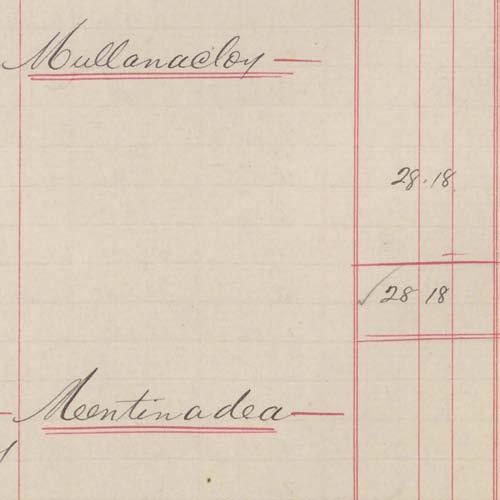 Mullanacloy
28.18
28 18
Meentinadea